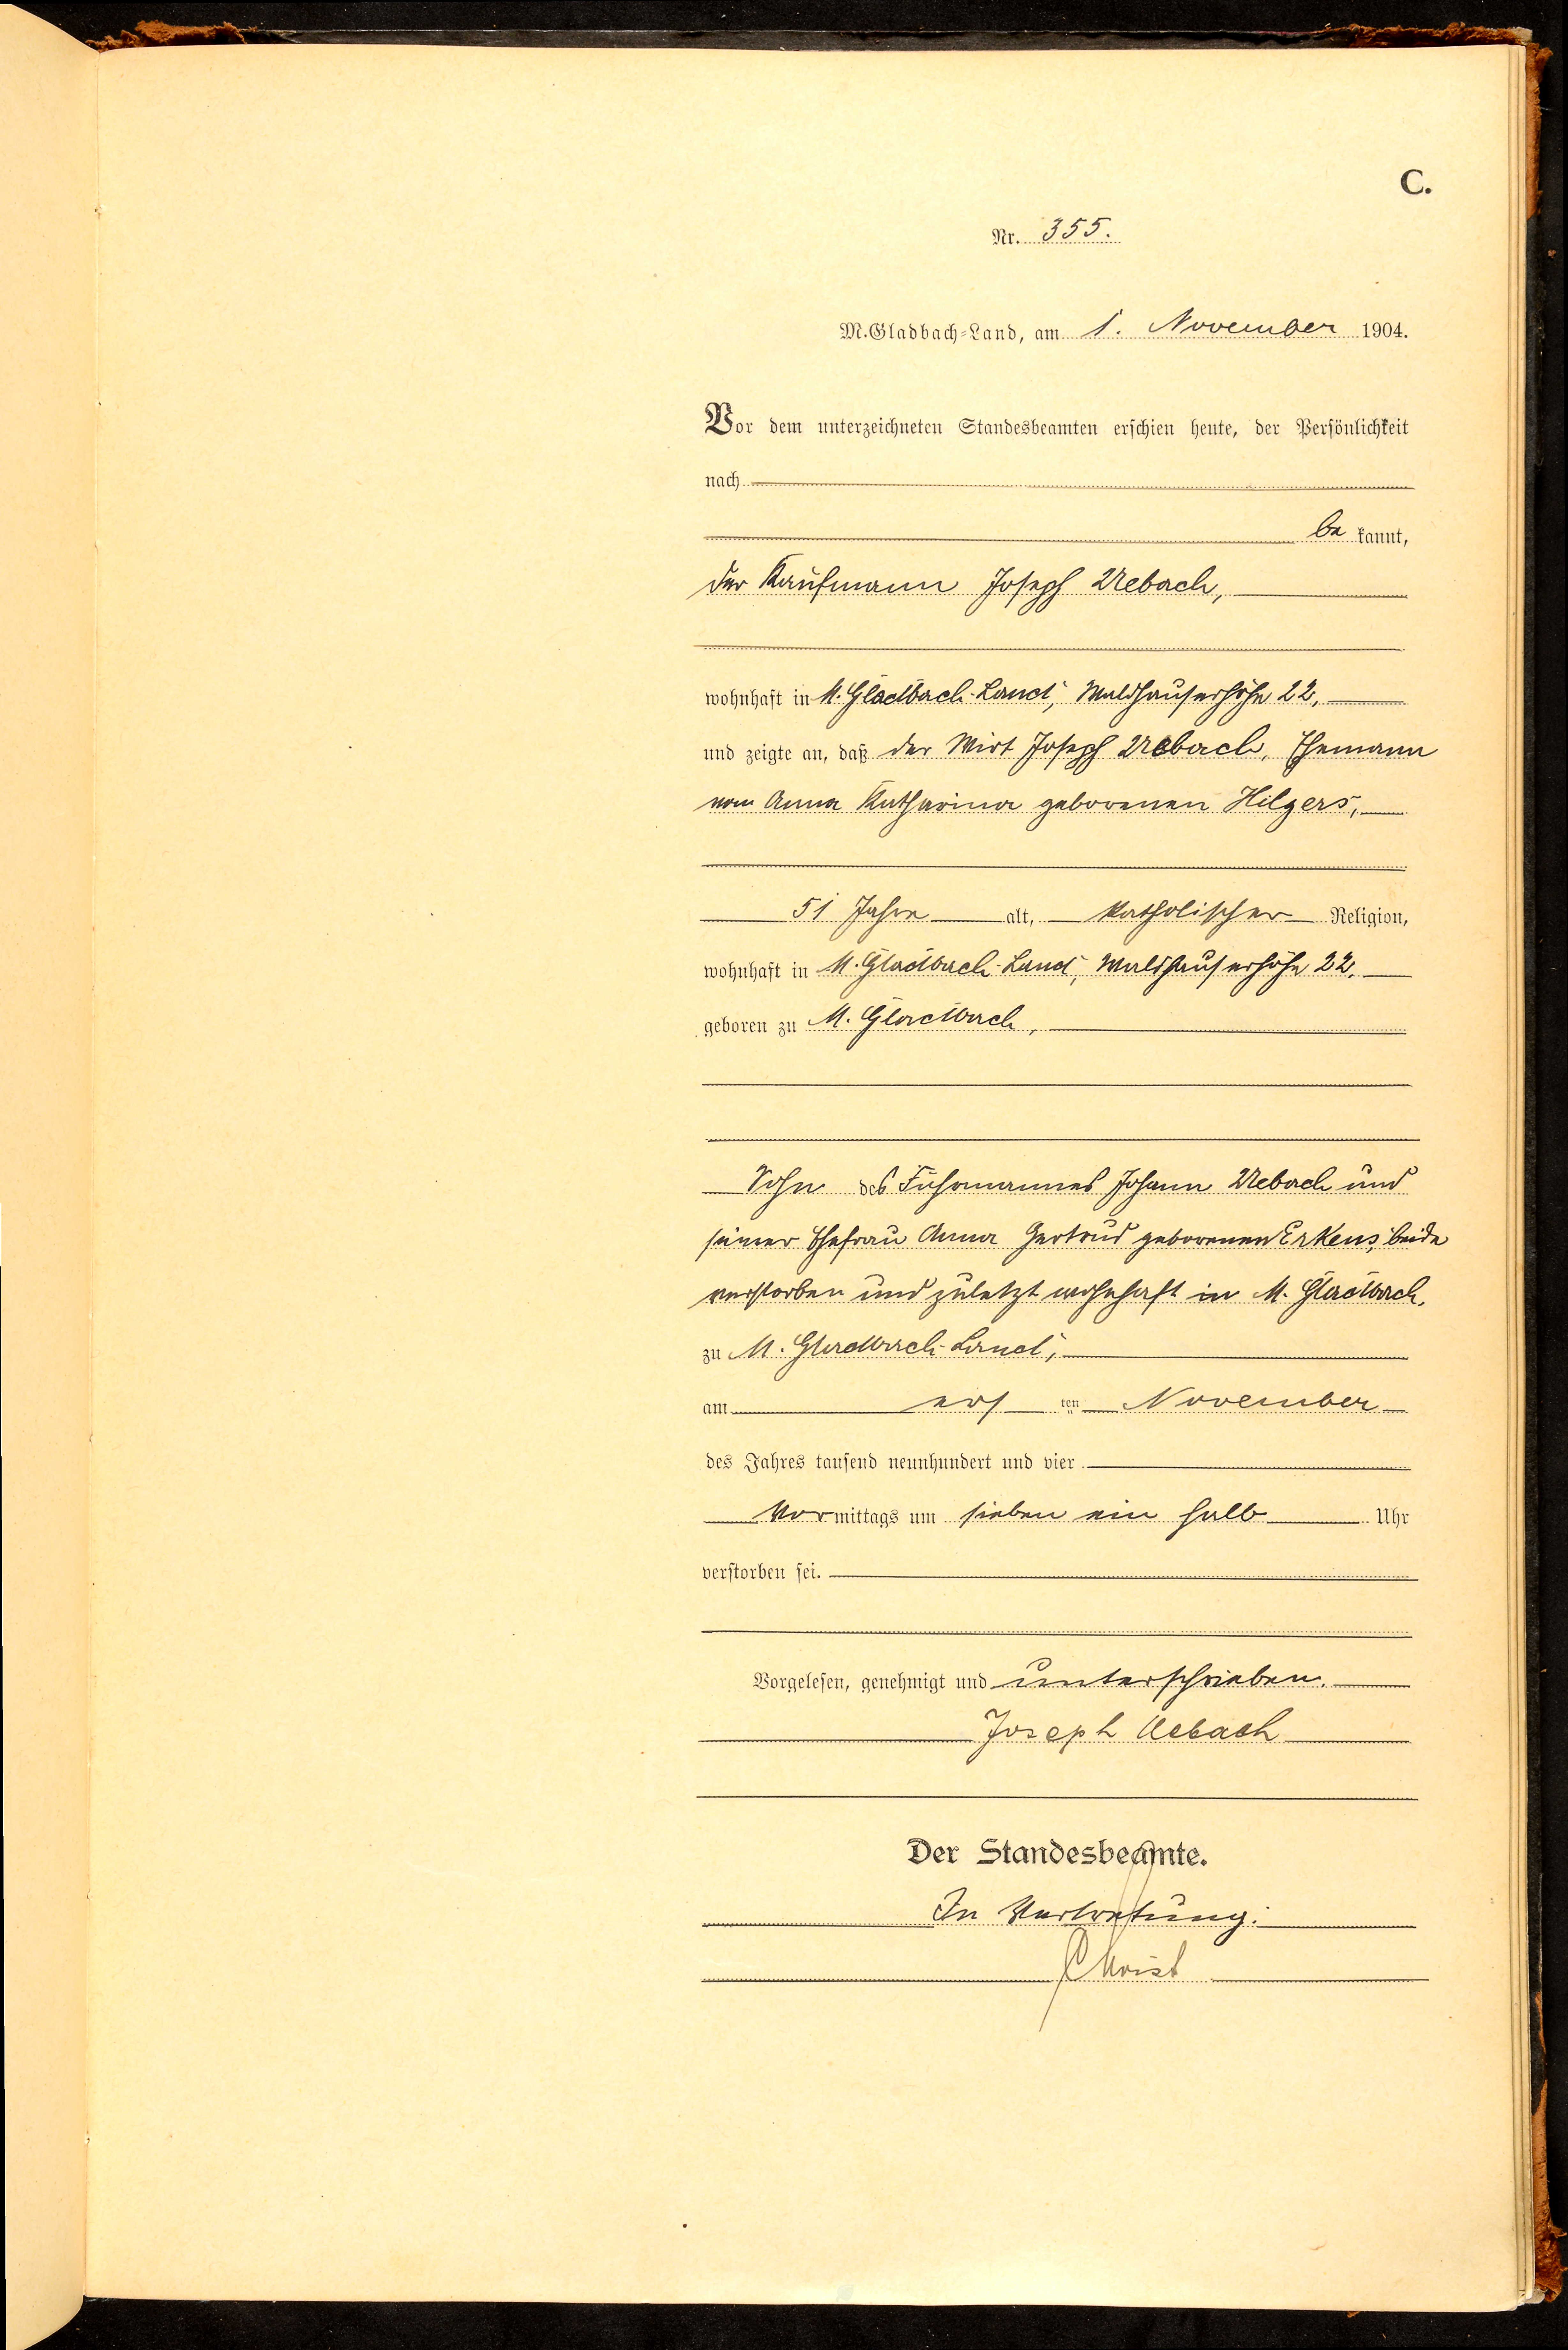 C.
Nr. 355.
M.Gladbach-Land, am 1. November 1904.
Vor dem unterzeichneten Standesbeamten erschien heute, der Persönlichkeit
nach
be kannt,
der Kaufmann Joseph Uebach,
wohnhaft in M. Gladbach-Land, Waldhauserhöhe 22,
und zeigte an, daß der Wirt Joseph Uebach, Ehemann
von Anna Katharina geborenen Hilgers,
51 Jahre alt, katholischer Religion,
wohnhaft in M. Gladbach-Land, Waldhauserhöhe 22,
geboren zu M. Gladbach,
Sohn des Fuhrmannes Johann Uebach und
seiner Ehefrau Anna Gertrud geborenen Erkens, beide
verstorben und zuletzt wohnhaft in M. Gladbach,
zu M. Gladbach-Land,
am ers ten November
des Jahres tausend neunhundert und vier
Vor mittags um sieben ein halb Uhr
verstorben sei.
Vorgelesen, genehmigt und unterschrieben.
Joseph Uebach
Der Standesbeamte.
In Vertretung:
Christ